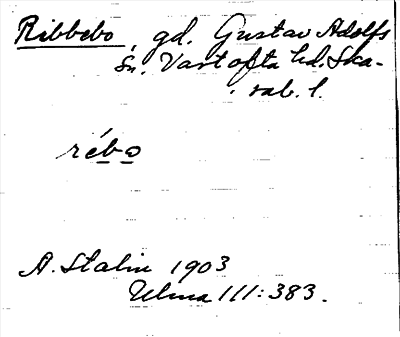 Ribbebo, gd. Gustav Adolfs
sn. Vartofta hd. Ska-
rab. l.
rébo
A. Stalin 1903
Ulma III:383.